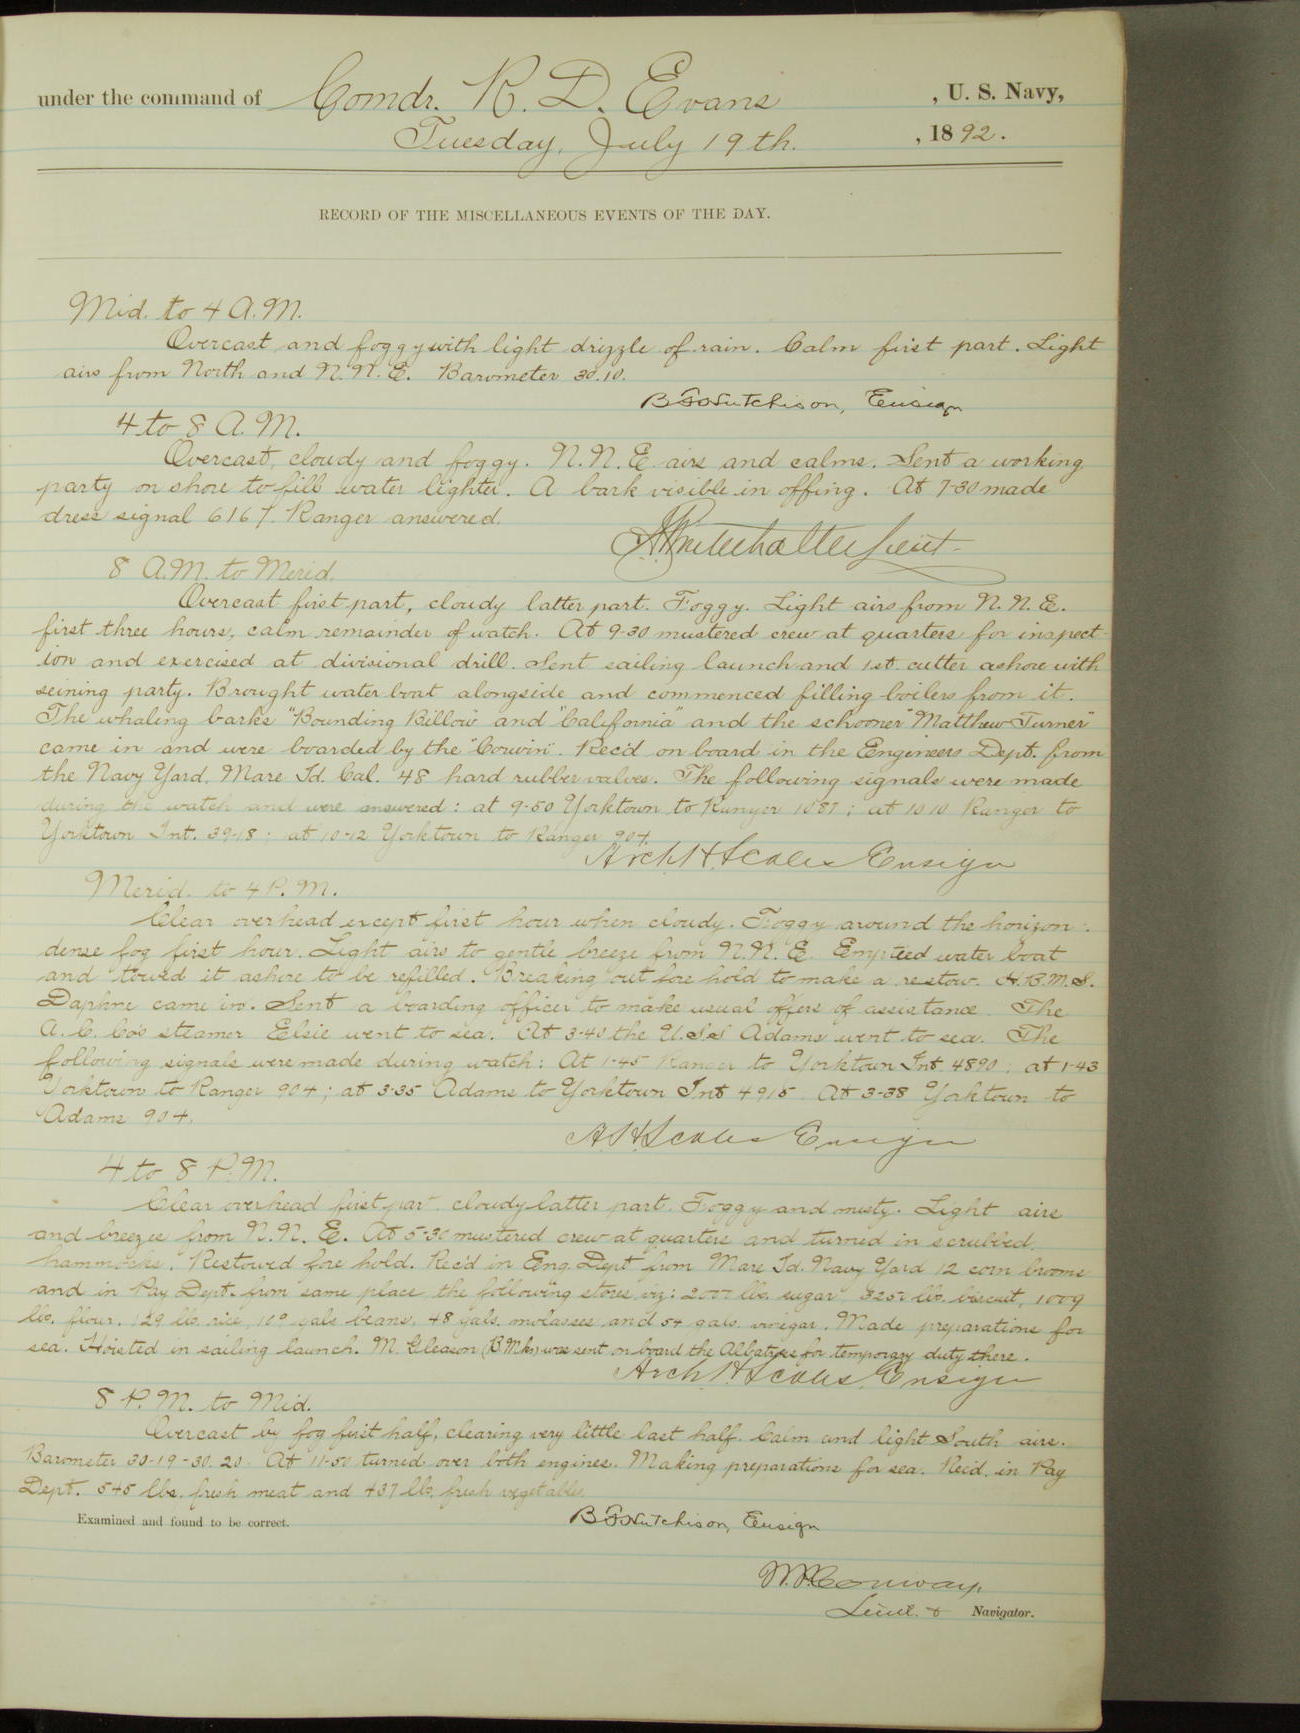 under the command of Comdr. R. D. Evans , U. S. Navy,
Tuesday, July 19th. , 1892.
RECORD OF THE MISCELLANEOUS EVENTS OF THE DAY.
Mid. to 4 A.M.
Overcast and foggy with light drizzle of rain. Calm first part. Light
airs from North and N.N.E. Barometer 30.10.
B F Hutchison, Ensign
4 to 8 A.M.
Overcast, cloudy and foggy. N.N.E. airs and calms. Sent a working
party on shore to fill water lighter. A bark visible in offing. At 7-30 made
dress signal 6167. Ranger answered.
Lieut.
8 A.M. to Merid.
Overcast first part, cloudy latter part. Foggy. Light airs from N.N.E.
first three hours, calm remainder of watch. At 9-30 mustered crew at quarters for inspect-
ion and exercised at divisional drill. Sent sailing launch and 1st. cutter ashore with
seining party. Brought water boat alongside and commenced filling boilers from it.
The whaling barks "Bounding Billow" and "California" and the schooner "Matthew Turner"
came in and were boarded by the "Corwin". Rec'd on board in the Engineers Dept. from
the Navy Yard, Mare Id. Cal. 48 hard rubber valves. The following signals were made
during the watch and were answered: at 9-50 Yorktown to Ranger 1087; at 10 10 Ranger to
Yorktown Int. 3918; at 10-12 Yorktown to Ranger 904.
Arch. H. Scales Ensign
Merid. to 4 P.M.
Clear overhead except first hour when cloudy. Foggy around the horizon:
dense fog first hour. Light airs to gentle breeze from N.N.E. Emptied water boat
and towed it ashore to be refilled. Breaking out fore hold to make a restow. H.B.M.S.
Daphne came in. Sent a boarding officer to make usual offers of assistance. The
A. C. Co's steamer Elsie went to sea. At 3-40 the U.S.S. Adams went to sea. The
following signals were made during watch: At 1-45 Ranger to Yorktown Int 4890; at 1-43
Yorktown to Ranger 904; at 3-35 Adams to Yorktown Int 4915. At 3-38 Yorktown to
Adams 904.
A H Scales Ensign
4 to 8 P.M.
Clear overhead first part cloudy latter part. Foggy and misty. Light airs
and breezes from N.N.E. At 5-30 mustered crew at quarters and turned in scrubbed
hammocks. Restowed fore hold. Rec'd in Eng. Dept from Mare Id. Navy Yard 12 corn brooms
and in Pay Dept. from same place the following stores viz: 2000 lbs. sugar, lbs. biscuit, 1009
lbs. flour, 129 lbs. rice, gals beans, 48 gals. molasses and 54 gals. vinegar. Made preparations for
sea. Hoisted in sailing launch. M. Gleason (B.Mk) was sent on board the Albatross for temporary duty there.
Arch. H. Scales, Ensign
8 P.M. to Mid.
Overcast by fog first half, clearing very little last half. Calm and light South airs.
Barometer 30-19-30.20. At 11-50 turned over both engines. Making preparations for sea. Rec'd. in Pay
Dept. 545 lbs. fresh meat and 437 lbs. fresh vegetables.
Examined and found to be correct. B F Hutchison, Ensign
W. P. Conway,
Lieut. & Navigator.